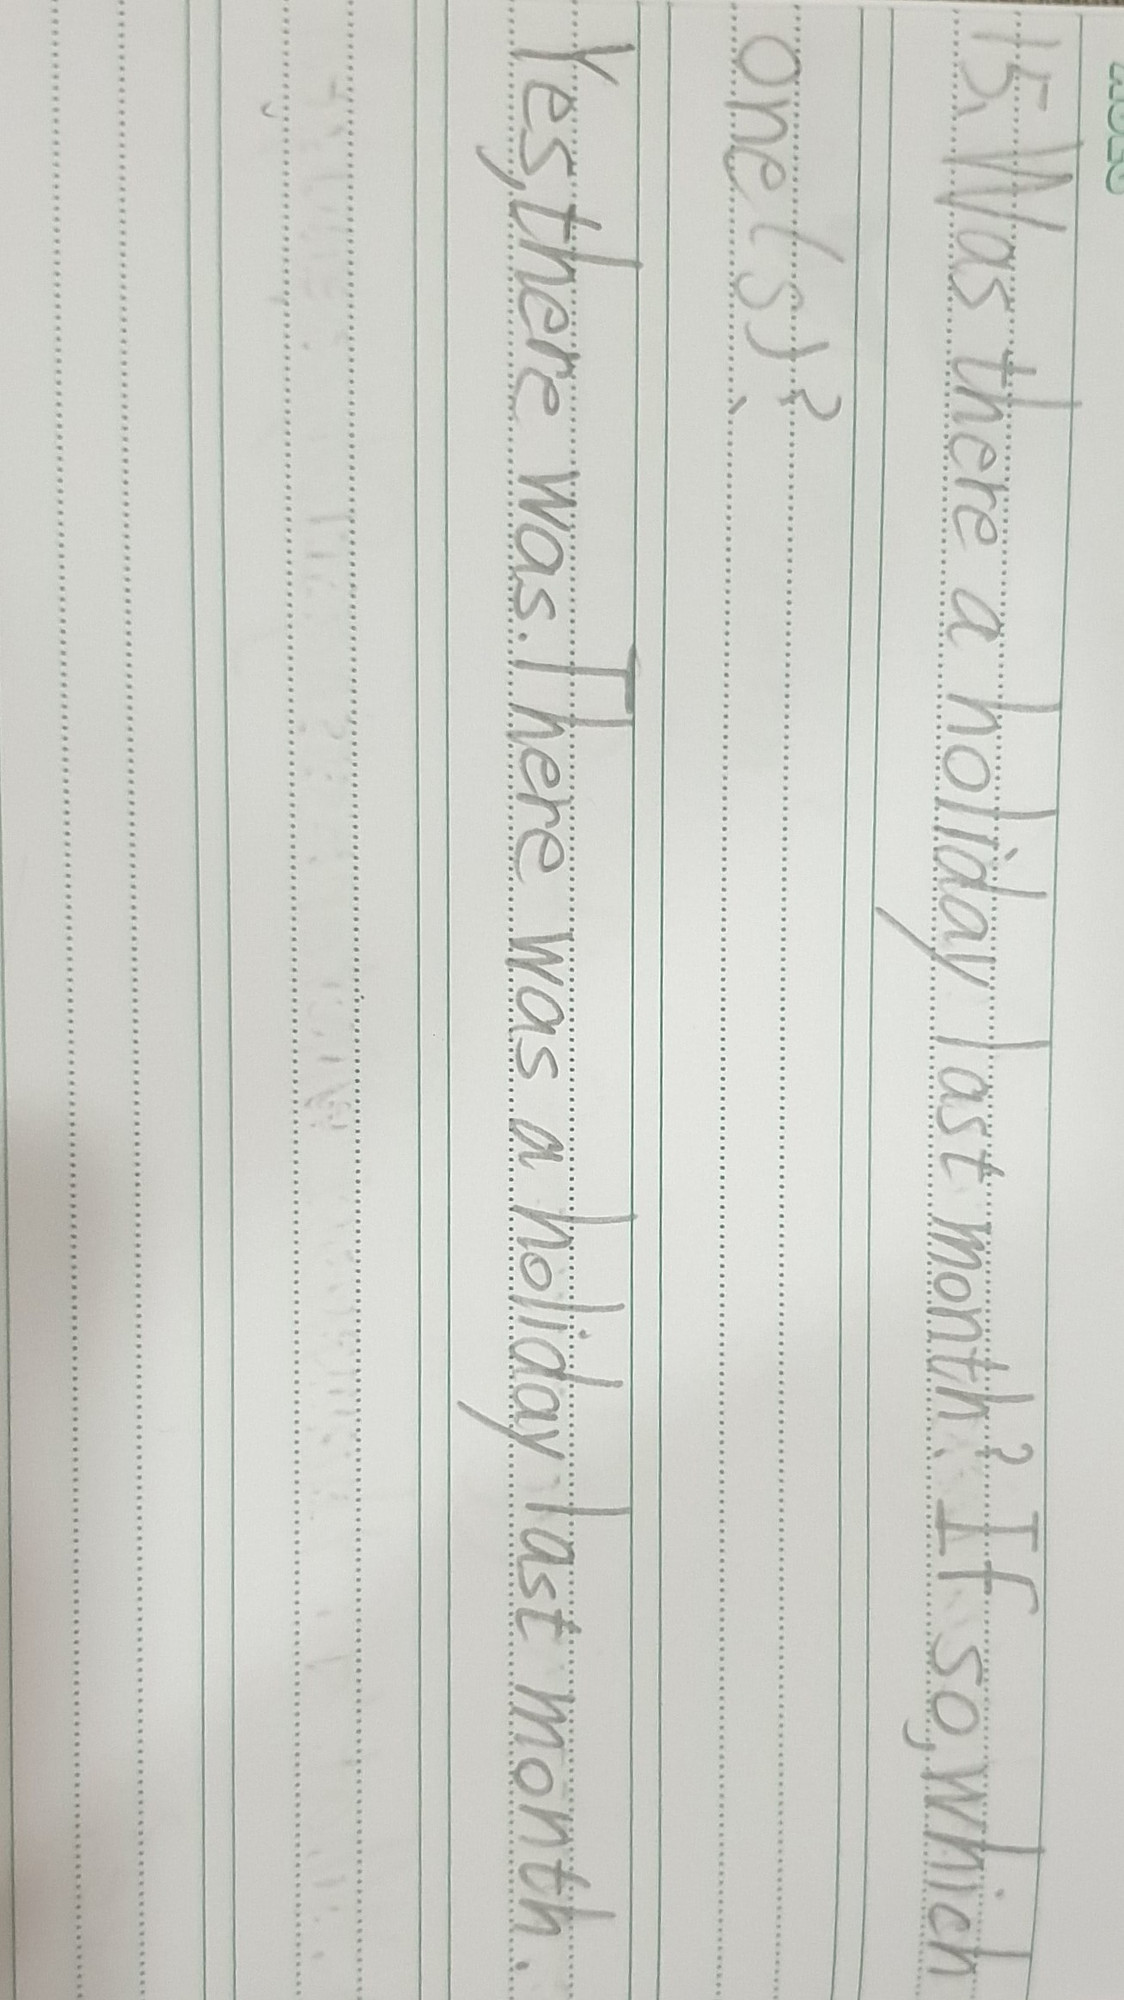 15. Was there a holiday last month? If so, which
one(s)?
Yes, there was. There was a holiday last month.